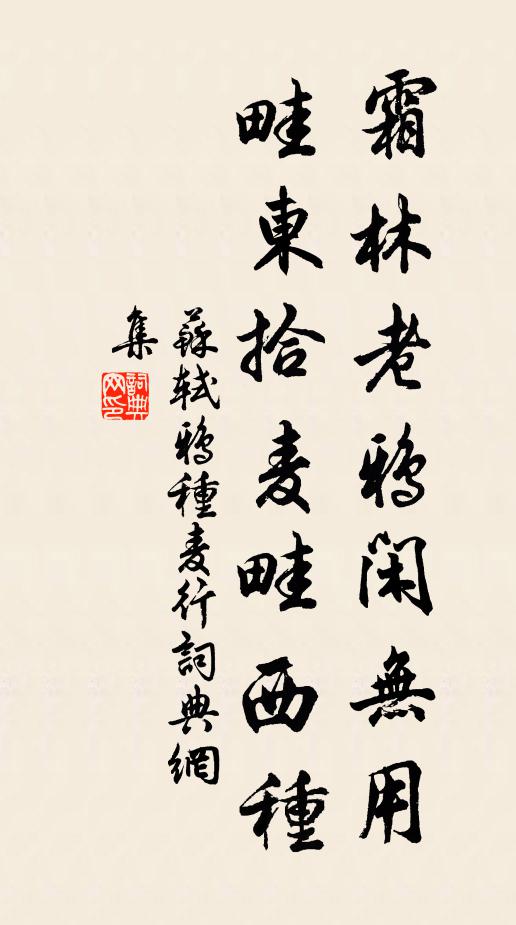 霜林老鴉閑無用
畦東拾麦畦西種
蘇軾鴉種麦行詞典網
集
詞典
网印